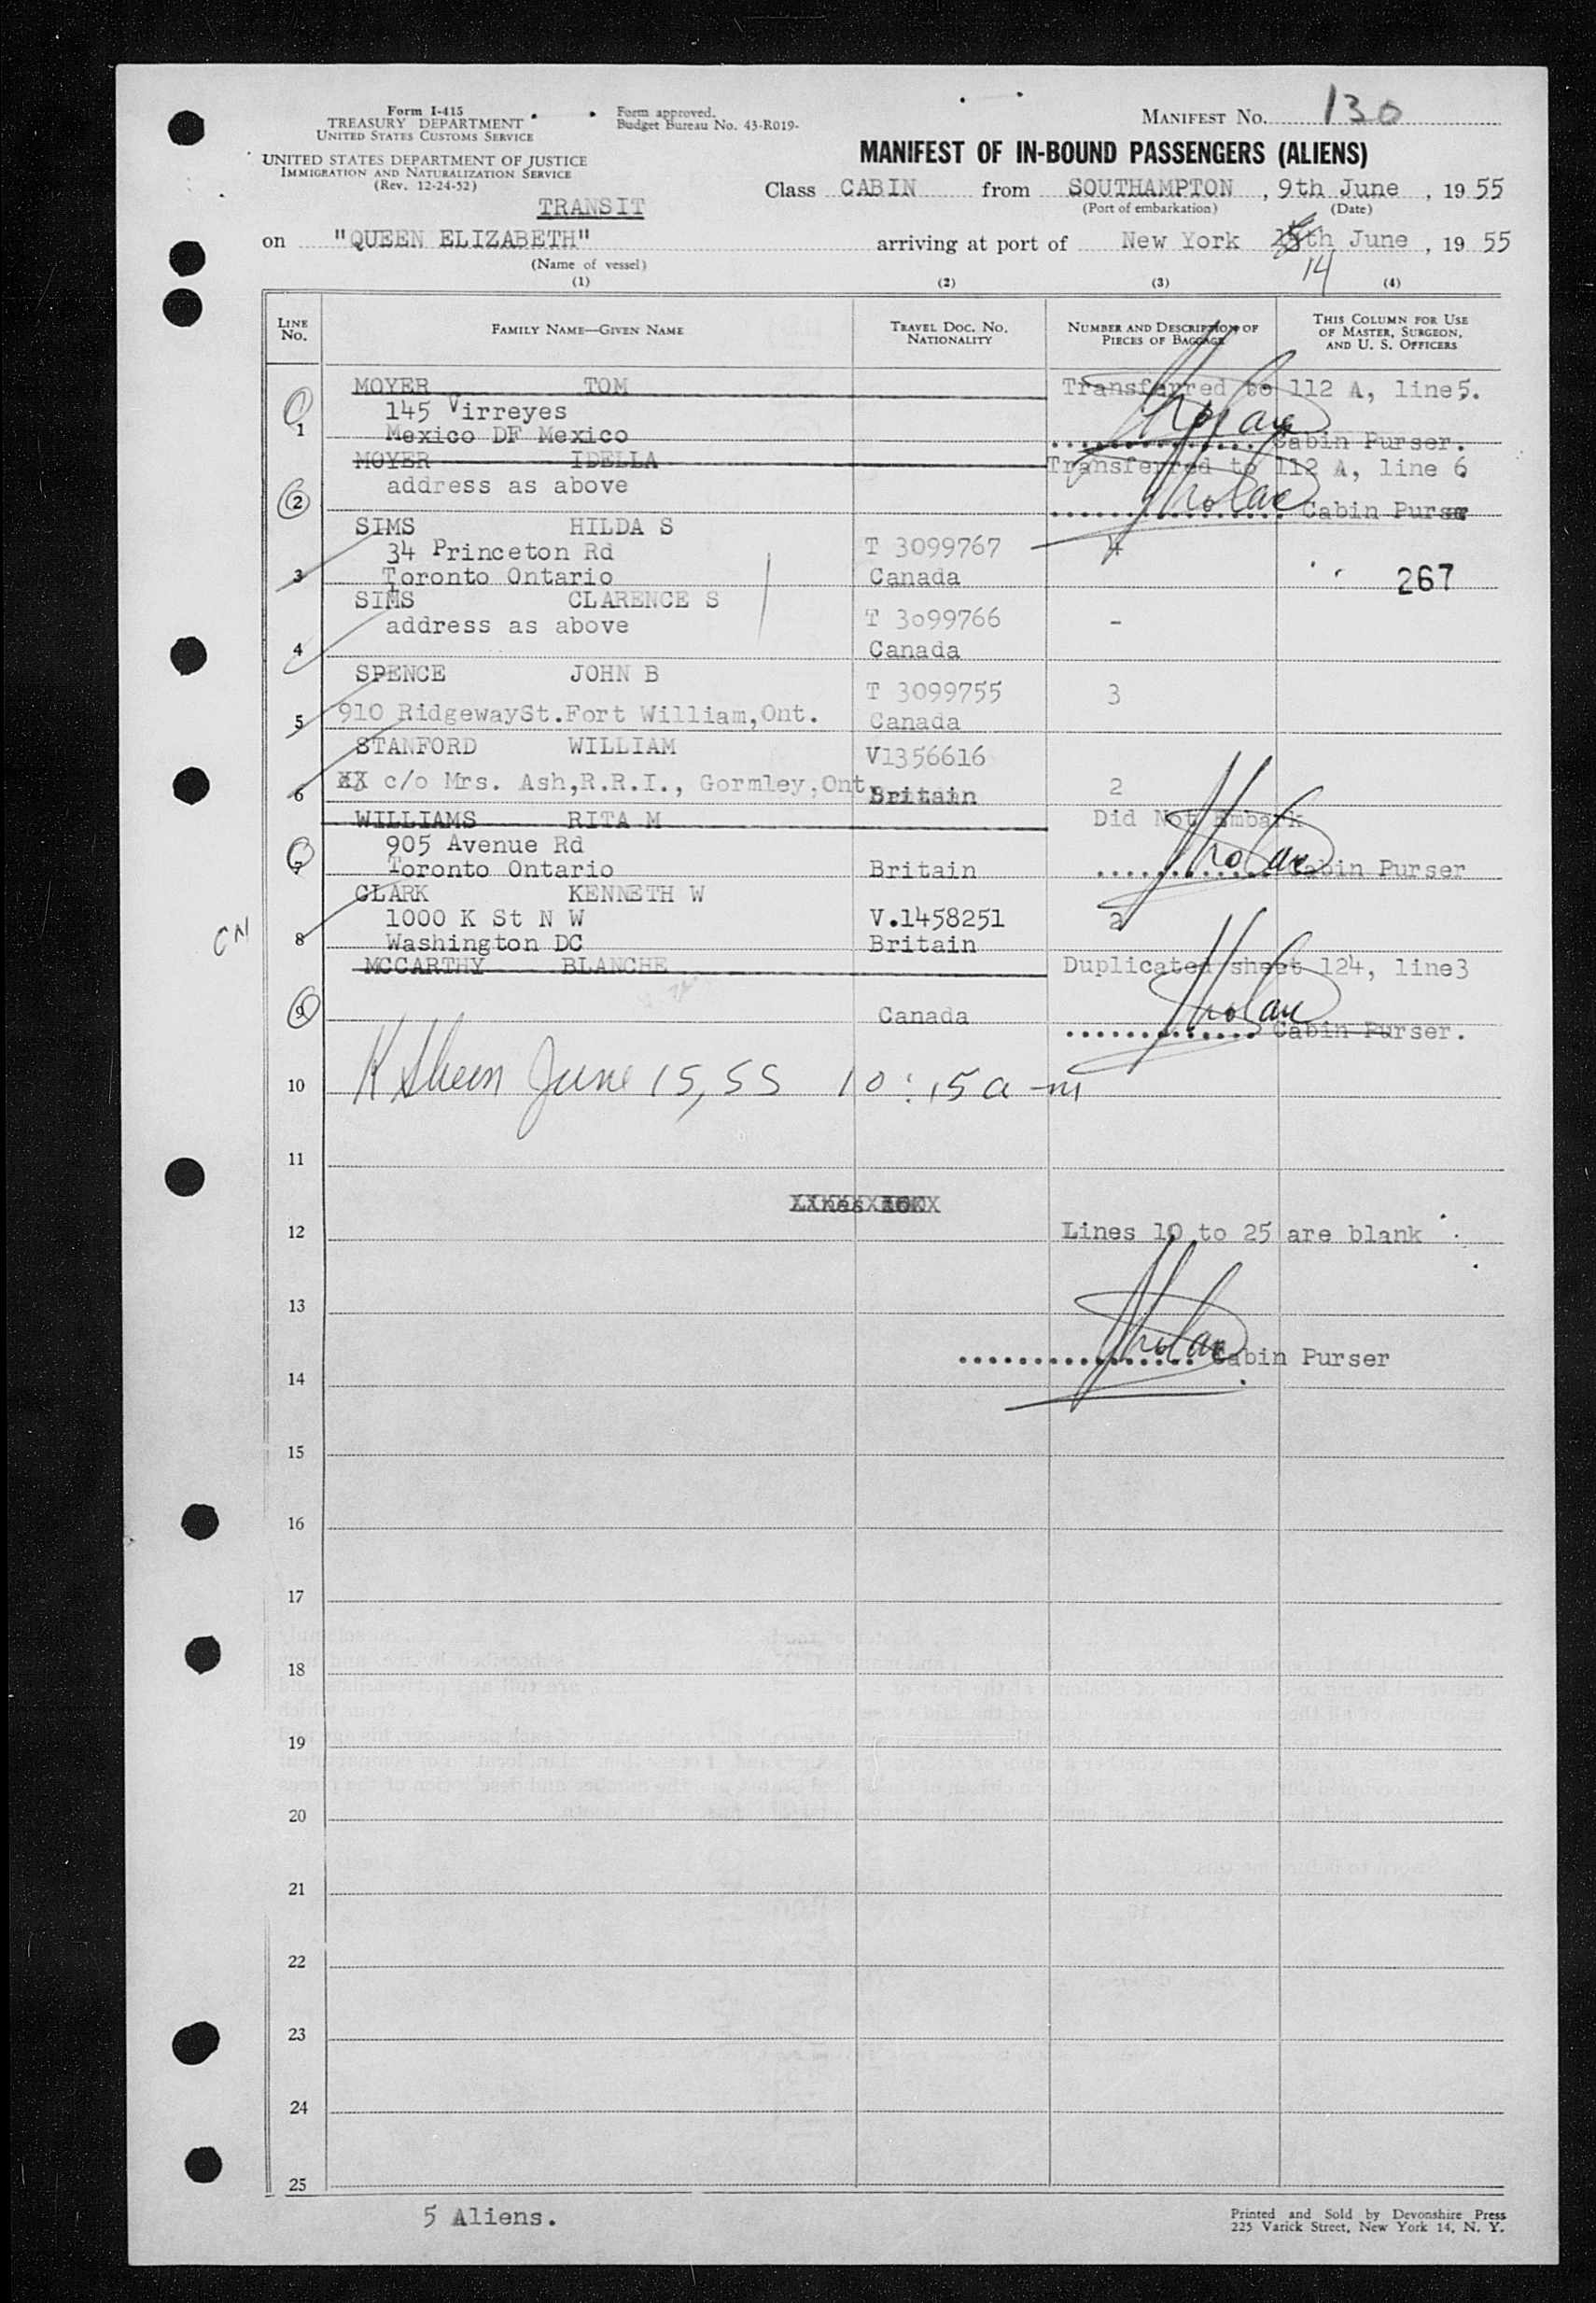 Form I-415
TREASURY DEPARTMENT
UNITED STATES CUSTOMS SERVICE
Form approved.
Budget Bureau No. 43-R019-
MANIFEST NO. 130
UNITED STATES DEPARTMENT OF JUSTICE
IMMIGRATION AND NATURALIZATION SERVICE
(Rev. 12-24-52)
MANIFEST OF IN-BOUND PASSENGERS (ALIENS)
TRANSIT
Class CABIN from SOUTHAMPTON, 9th June, 19 55
(Port of embarkation) (Date)
on "QUEEN ELIZABETH" arriving at port of New York th June, 19 55
14
(Name of vessel)
(1) (2) (3) (4)
LINE No. FAMILY NAME—GIVEN NAME TRAVEL DOC. NO. NATIONALITY NUMBER AND DESCRIPTION OF PIECES OF BAGGAGE THIS COLUMN FOR USE OF MASTER, SURGEON, AND U. S. OFFICERS
MOYER TOM Transferred to 112 A, line 5.
145 Virreyes
1 Mexico DF Mexico Cabin Purser.
MOYER IDELLA Transferred to 112 A, line 6
address as above
2 Cabin Purser
SIMS HILDA S
34 Princeton Rd T 3099767 4
3 Toronto Ontario Canada 267
SIMS CLARENCE S
address as above T 3099766 -
4 Canada
SPENCE JOHN B
T 3099755 3
5 910 RidgewaySt.Fort William,Ont. Canada
STANFORD WILLIAM V1356616
6 c/o Mrs. Ash,R.R.I., Gormley,Ont. Britain 2
WILLIAMS RITA M Did Not Embark
905 Avenue Rd
7 Toronto Ontario Britain Cabin Purser
CLARK KENNETH W
1000 K St N W V.1458251 2
CN 8 Washington DC Britain
MCCARTHY BLANCHE Duplicated sheet 124, line3
9 Canada Cabin Purser.
10 K Sheen June 15, 55 10:15 a-m
11
12 Lines 10 to 25 are blank
13
Cabin Purser
14
15
16
17
18
19
20
21
22
23
24
25
5 Aliens.
Printed and Sold by Devonshire Press
225 Varick Street, New York 14, N. Y.